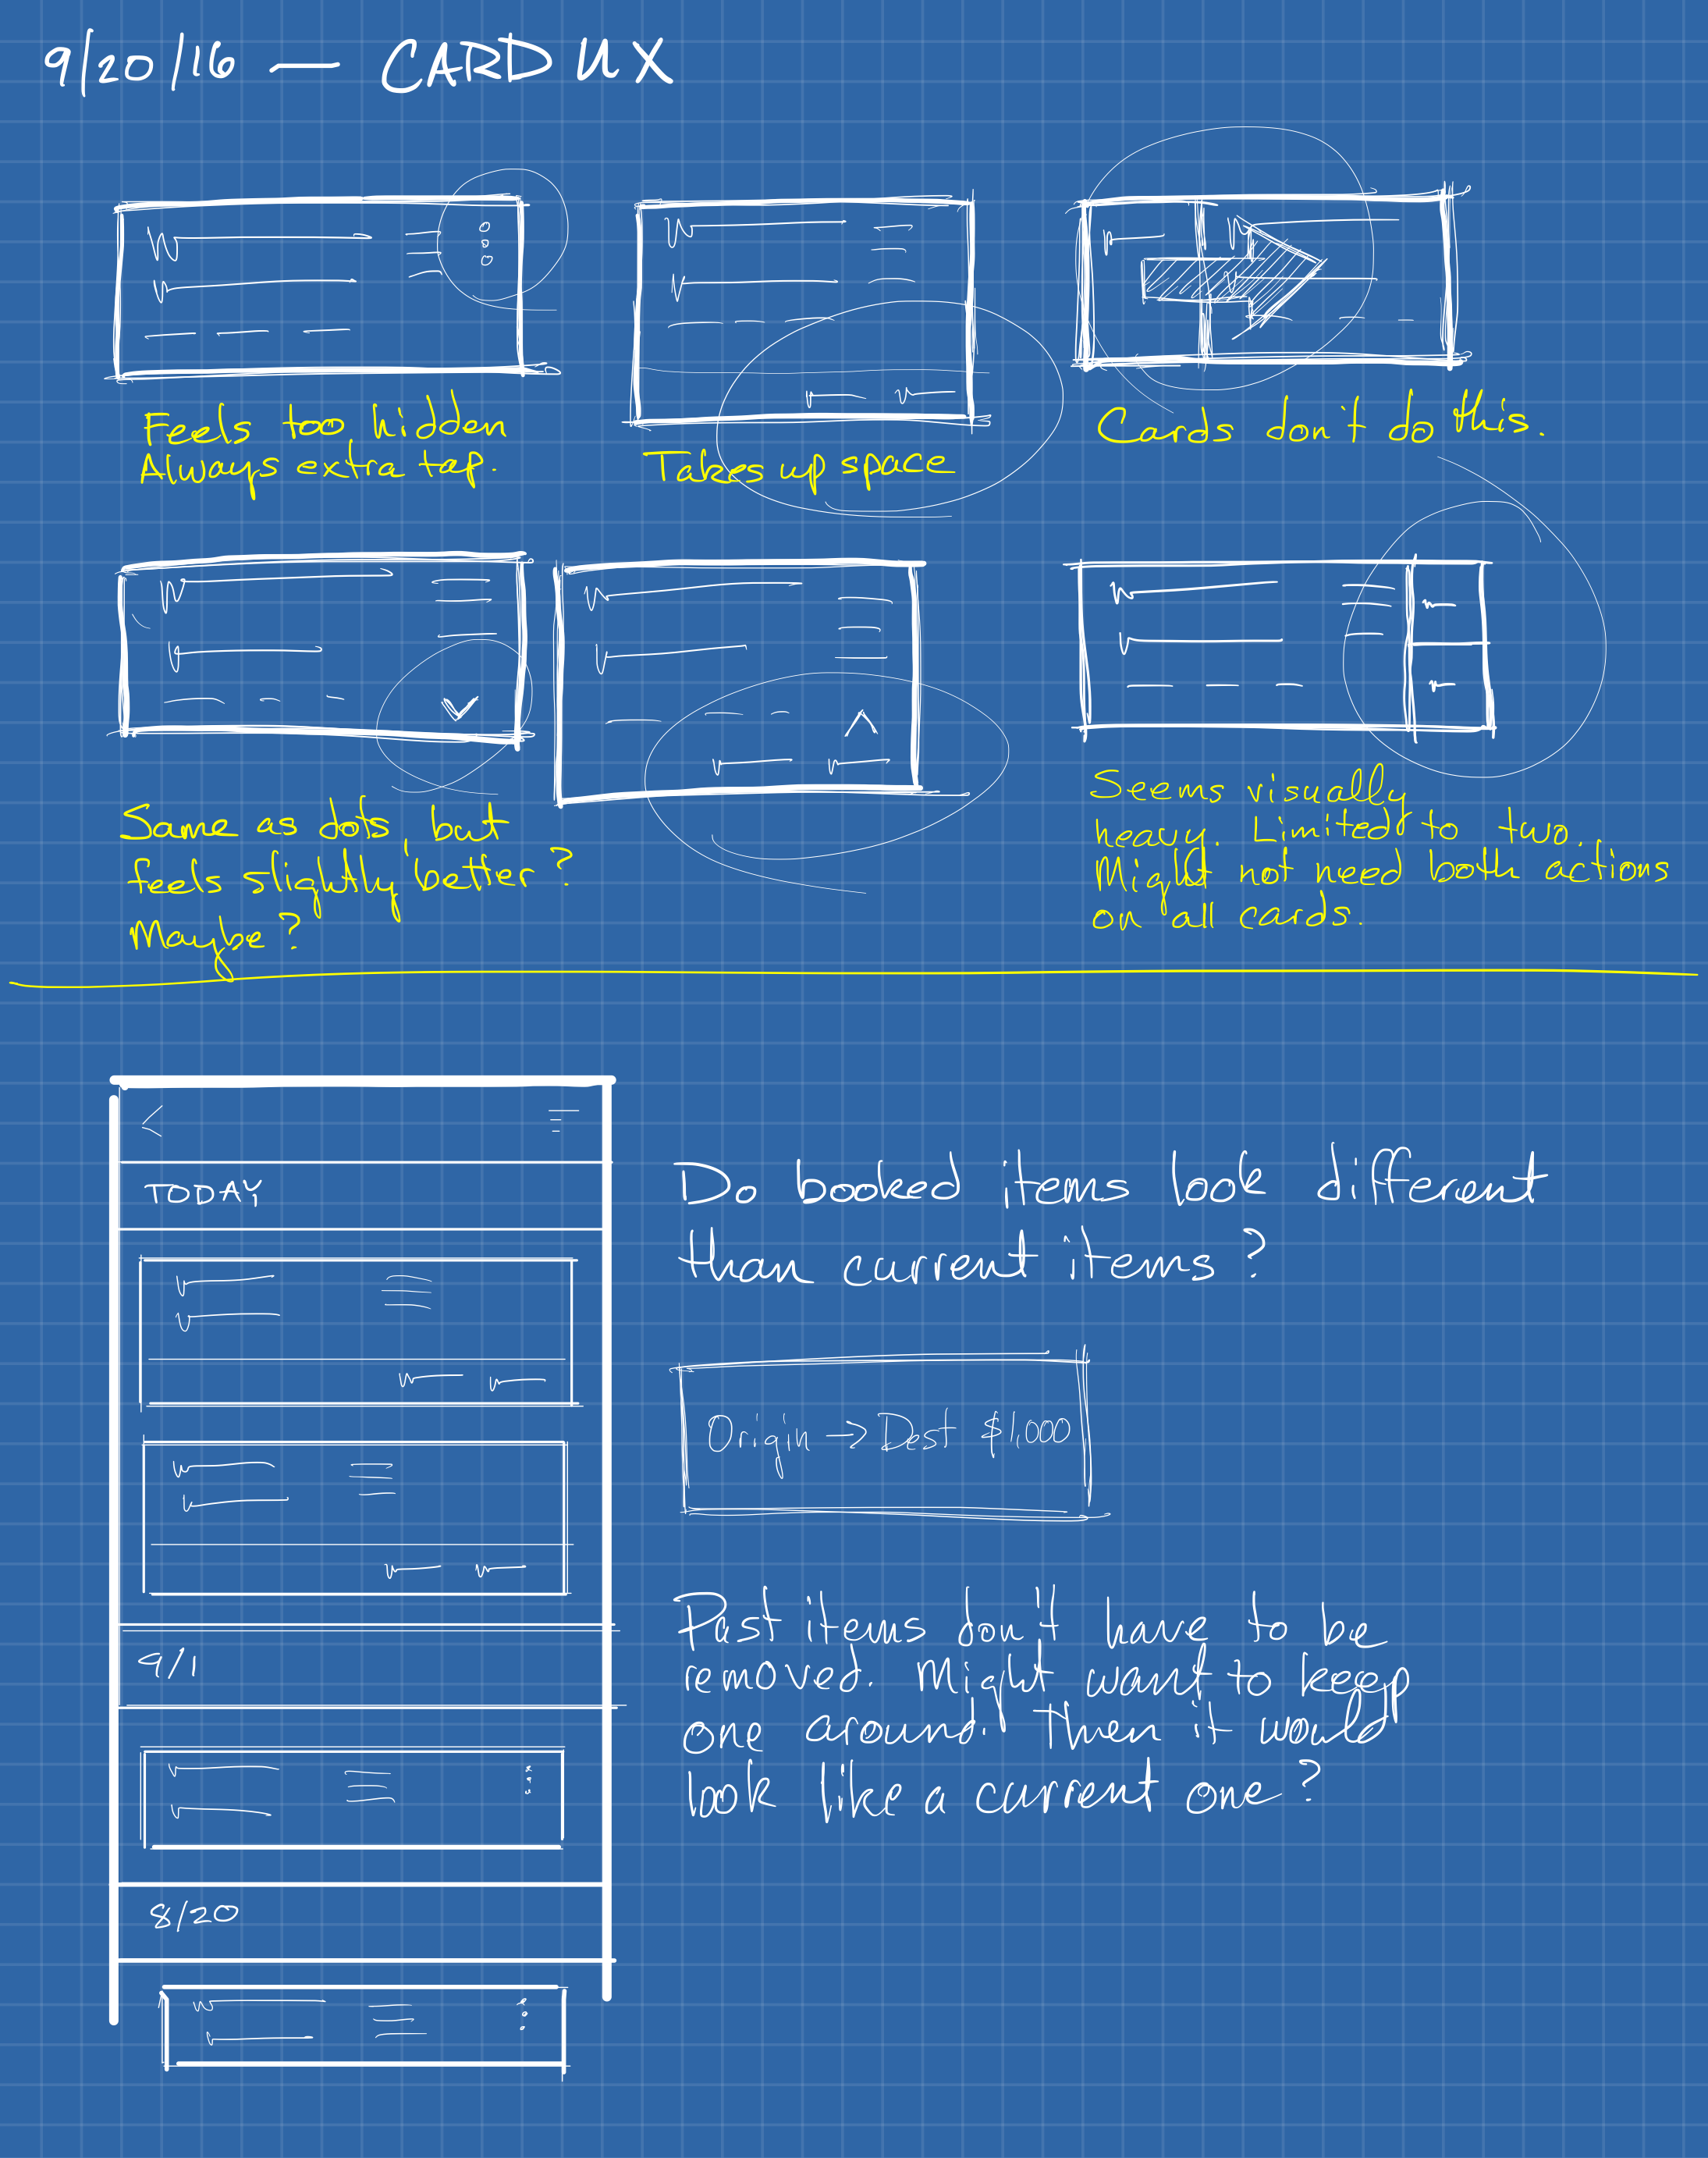 9/20/16 — CARD UX
Feels too hidden
Always extra tap.
Takes up space
Cards don't do this.
Same as dots, but
feels slightly better?
Maybe?
Seems visually
heavy. Limited to two.
Might not need both actions
on all cards.
TODAY
9/1
8/20
Do booked items look different
than current items?
Origin -> Dest $1,000
Past items don't have to be
removed. Might want to keep
one around. Then it would
look like a current one?